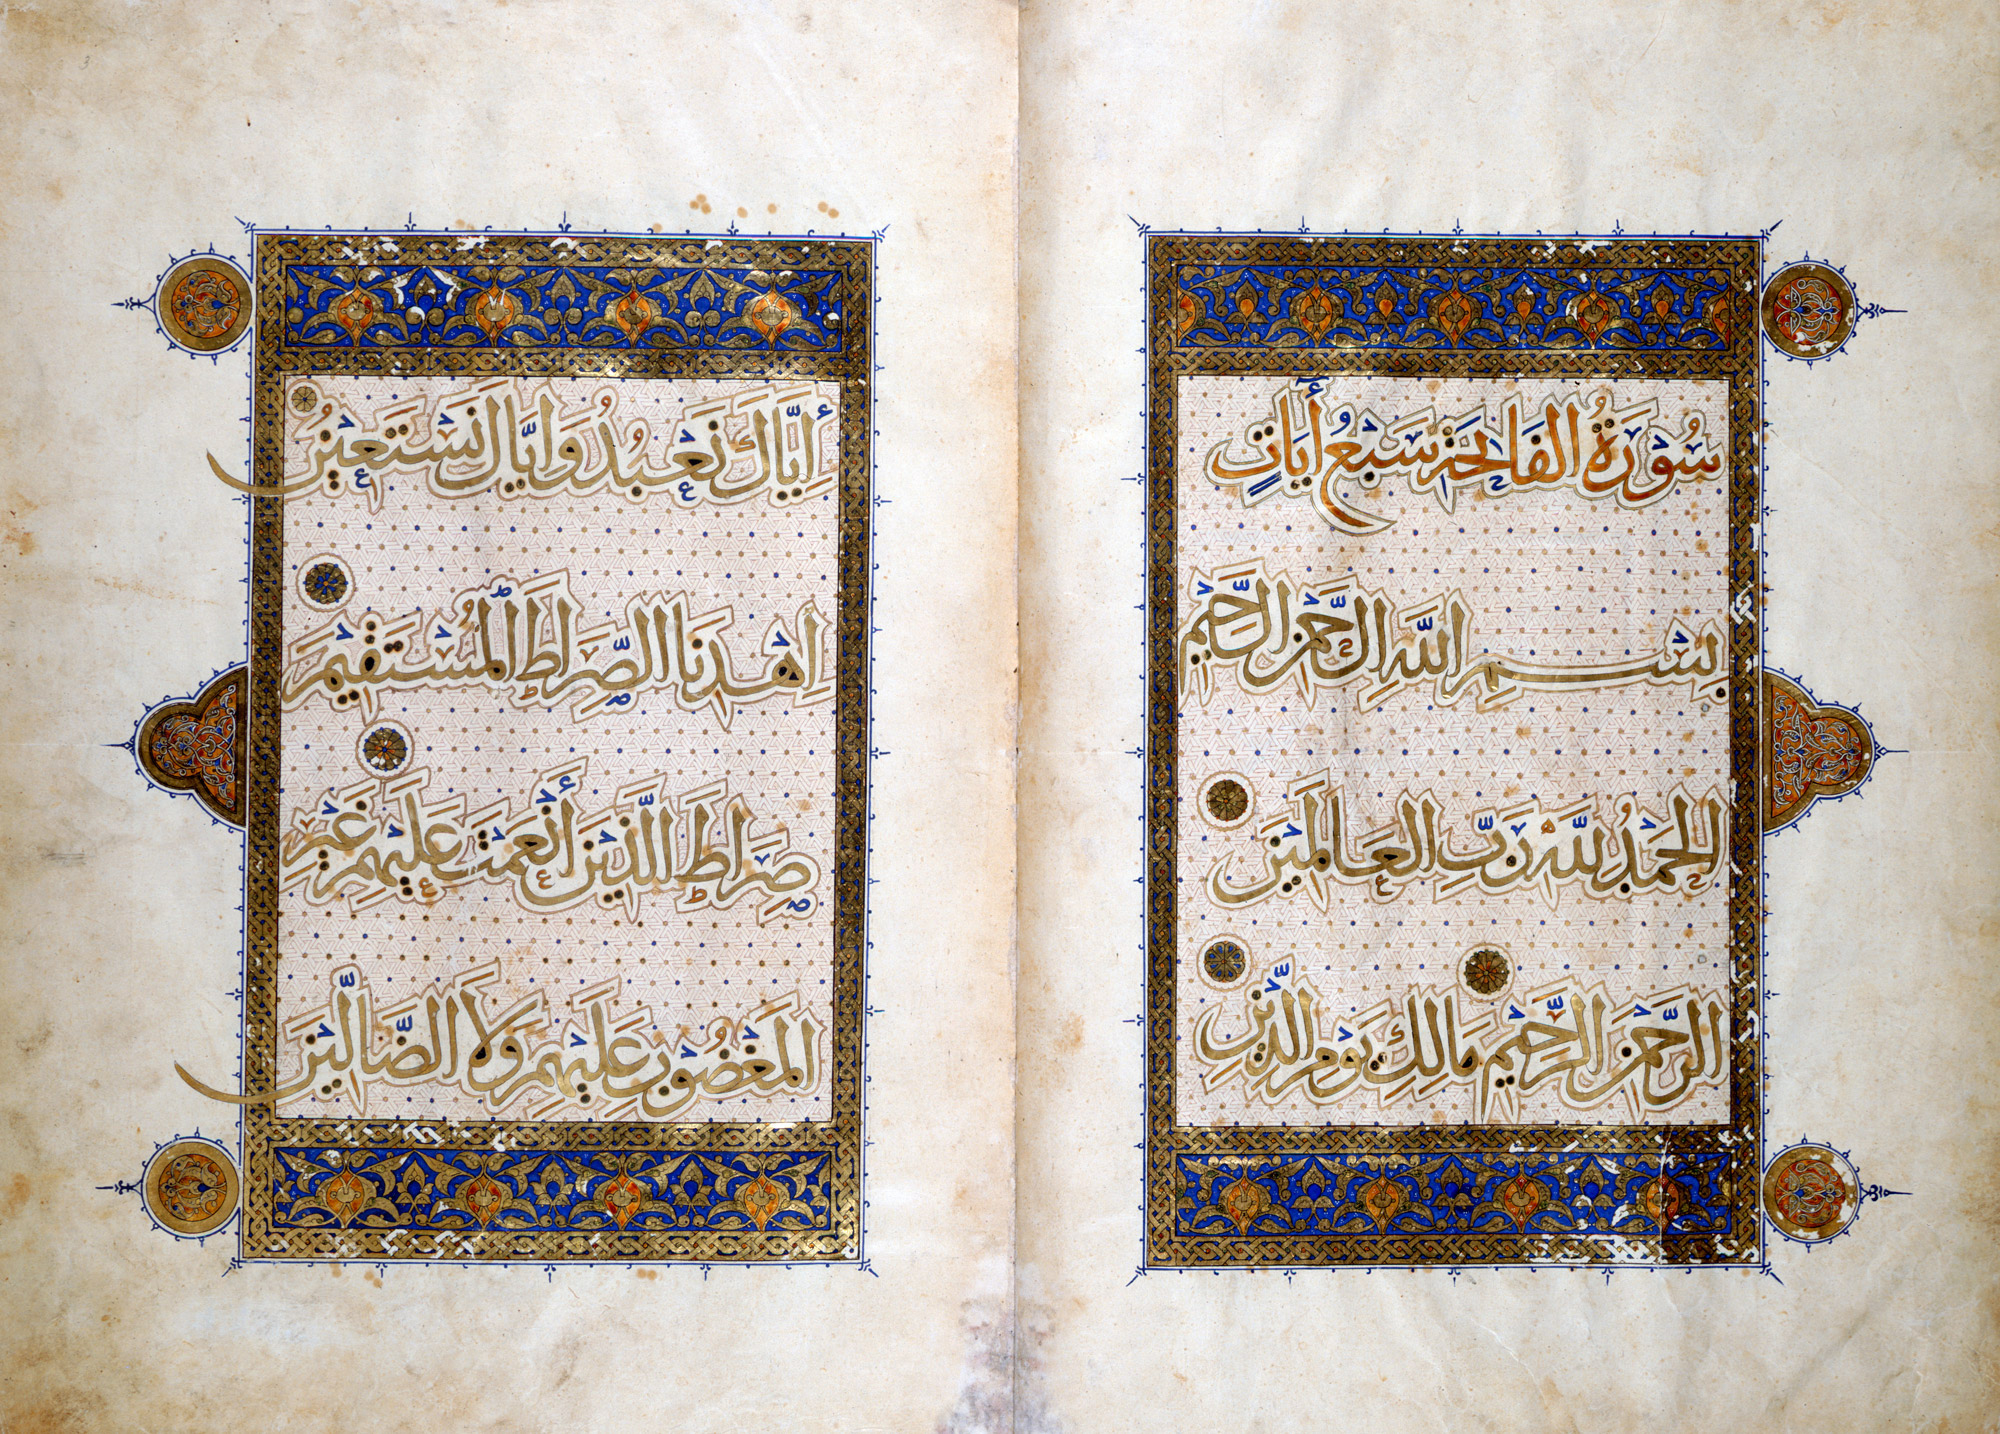 سُورَةُ الفَاتِحَةِ سَبْعُ أَيَاتٍ
بِسْمِ اللَّهِ الرَّحْمَنِ الرَّحِيْمِ
الْحَمْدُ لِلَّهِ رَبِّ الْعَالَمِيْنَ
الرَّحْمَنِ الرَّحِيْمِ مَالِكِ يَوْمِ الدِّيْنِ
إِيَّاكَ نَعْبُدُ وَإِيَّاكَ نَسْتَعِيْنُ
اِهْدِنَا الصِّرَاطَ الْمُسْتَقِيْمَ
صِرَاطَ الَّذِيْنَ أَنْعَمْتَ عَلَيْهِمْ غَيْرِ
الْمَغْضُوْبِ عَلَيْهِمْ وَلَا الضَّالِّيْنَ